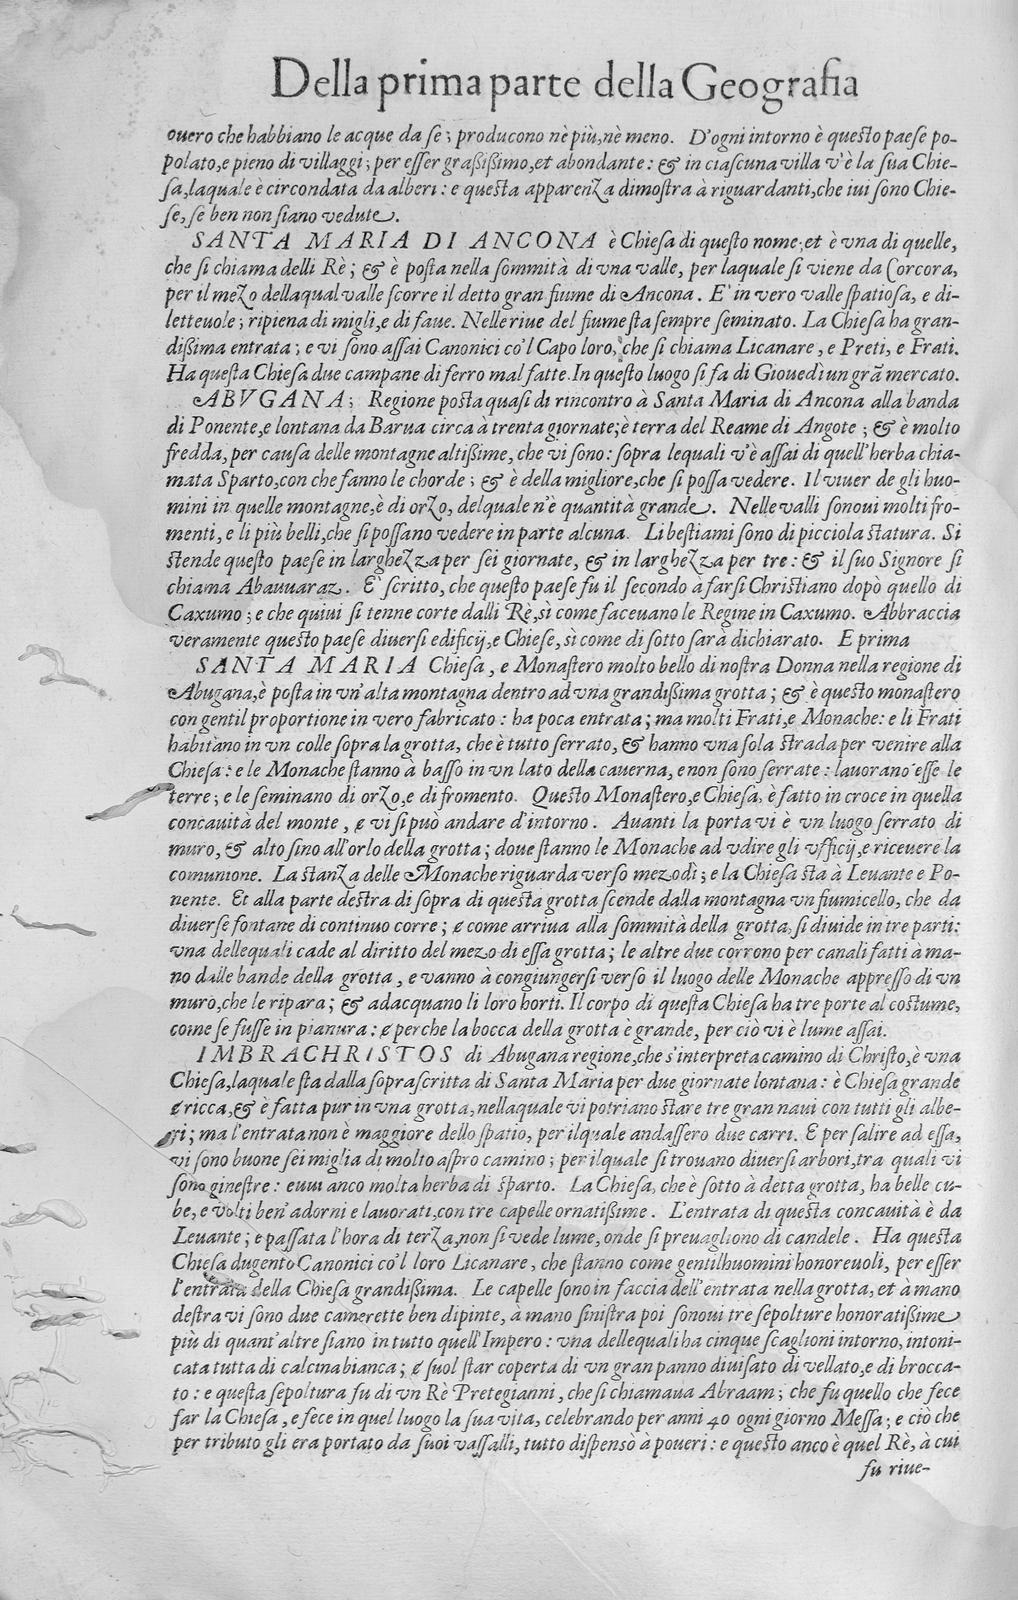 Della prima parte della Geografia
ouero che habbiano le acque da se; producono nè più, nè meno. D'ogni intorno è questo paese po-
polato, e pieno di villaggi; per esser grassissimo, et abondante: & in ciascuna villa v'è la sua Chie-
sa, laquale è circondata da alberi: e questa apparenza dimostra à riguardanti, che iui sono Chie-
se, se ben non siano vedute.
SANTA MARIA DI ANCONA è Chiesa di questo nome, et è vna di quelle,
che si chiama delli Rè; & è posta nella sommità di vna valle, per laquale si viene da Corcora,
per il mezo dellaqual valle scorre il detto gran fiume di Ancona. E' in vero valle spatiosa, e di-
letteuole; ripiena di migli, e di faue. Nelle riue del fiume sta sempre seminato. La Chiesa ha gran-
dissima entrata; e vi sono assai Canonici co'l Capo loro, che si chiama Licanare, e Preti, e Frati.
Ha questa Chiesa due campane di ferro mal fatte. In questo luogo si fa di Giouedì un grã mercato.
ABVGANA; Regione posta quasi di rincontro à Santa Maria di Ancona alla banda
di Ponente, e lontana da Barua circa à trenta giornate; è terra del Reame di Angote; & è molto
fredda, per causa delle montagne altissime, che vi sono: sopra lequali v'è assai di quell'herba chia-
mata Sparto, con che fanno le chorde; & è della migliore, che si possa vedere. Il viuer de gli huo-
mini in quelle montagne, è di orzo, del quale n'è quantità grande. Nelle valli sonoui molti fro-
menti, e li più belli, che si possano vedere in parte alcuna. Li bestiami sono di picciola statura. Si
stende questo paese in larghezza per sei giornate, & in larghezza per tre: & il suo Signore si
chiama Abauuaraz. E' scritto, che questo paese fu il secondo à farsi Christiano dopò quello di
Caxumo; e che quiui si tenne corte dalli Rè, sì come faceuano le Regine in Caxumo. Abbraccia
veramente questo paese diuersi edificij, e Chiese, sì come di sotto sarà dichiarato. E prima
SANTA MARIA Chiesa, e Monastero molto bello di nostra Donna nella regione di
Abugana, è posta in vn'alta montagna dentro ad vna grandissima grotta; & è questo monastero
con gentil proportione in vero fabricato: ha poca entrata; ma molti Frati, e Monache: e li Frati
habitano in vn colle sopra la grotta, che è tutto serrato, & hanno vna sola strada per venire alla
Chiesa: e le Monache stanno à basso in vn lato della cauerna, e non sono serrate: lauorano esse le
terre; e le seminano di orzo, e di fromento. Questo Monastero, e Chiesa, è fatto in croce in quella
concauità del monte, e vi si può andare d'intorno. Auanti la porta vi è vn luogo serrato di
muro, & alto sino all'orlo della grotta; doue stanno le Monache ad vdire gli vfficij, e riceuere la
comunione. La stanza delle Monache riguarda verso mezodì; e la Chiesa sta à Leuante e Po-
nente. Et alla parte destra di sopra di questa grotta scende dalla montagna vn fiumicello, che da
diuerse fontane di continuo corre; e come arriua alla sommità della grotta, si diuide in tre parti:
vna dellequali cade al diritto del mezo di essa grotta; le altre due corrono per canali fatti à ma-
no dalle bande della grotta, e vanno à congiungersi verso il luogo delle Monache appresso di vn
muro, che le ripara; & adacquano li loro horti. Il corpo di questa Chiesa ha tre porte al costume,
come se fusse in pianura: e perche la bocca della grotta è grande, per ciò vi è lume assai.
IMBRACHRISTOS di Abugana regione, che s'interpreta camino di Christo, è vna
Chiesa, laquale sta dalla soprascritta di Santa Maria per due giornate lontana: è Chiesa grande
e ricca, & è fatta pur in vna grotta, nellaquale vi potriano stare tre gran naui con tutti gli albe-
ri; ma l'entrata non è maggiore dello spatio, per ilquale andassero due carri. E per salire ad essa,
vi sono buone sei miglia di molto aspro camino; per ilquale si trouano diuersi arbori, tra quali vi
sono ginestre: euui anco molta herba di sparto. La Chiesa, che è sotto à detta grotta, ha belle cu-
be, e volti ben' adorni e lauorati, con tre capelle ornatissime. L'entrata di questa concauità è da
Leuante; e passata l'hora di terza, non si vede lume, onde si preuagliono di candele. Ha questa
Chiesa dugento Canonici co'l loro Licanare, che stanno come gentilhuomini honoreuoli, per esser
l'entrata della Chiesa grandissima. Le capelle sono in faccia dell'entrata nella grotta, et à mano
destra vi sono due camerette ben dipinte, à mano sinistra poi sonoui tre sepolture honoratissime
più di quant'altre siano in tutto quell'Impero: vna dellequali ha cinque scaglioni intorno, intoni-
cata tutta di calcina bianca; e suol star coperta di vn gran panno diuisato di vellato, e di brocca-
to: e questa sepoltura fu di vn Rè Pretegianni, che si chiamaua Abraam; che fu quello che fece
far la Chiesa, e fece in quel luogo la sua vita, celebrando per anni 40 ogni giorno Messa; e ciò che
per tributo gli era portato da suoi vassalli, tutto dispensò à poueri: e questo anco è quel Rè, à cui
fu riue-